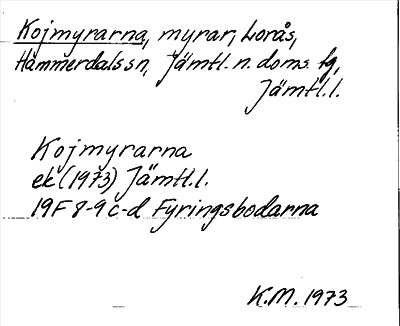 Kojmyrarna, myrar, Lorås,
Hammerdals sn, Jämtl. n. doms. tg,
Jämtl. l.
Kojmyrarna
ek (1973) Jämtl. l.
19F 8-9 c-d Fyringsbodarna
K.M. 1973